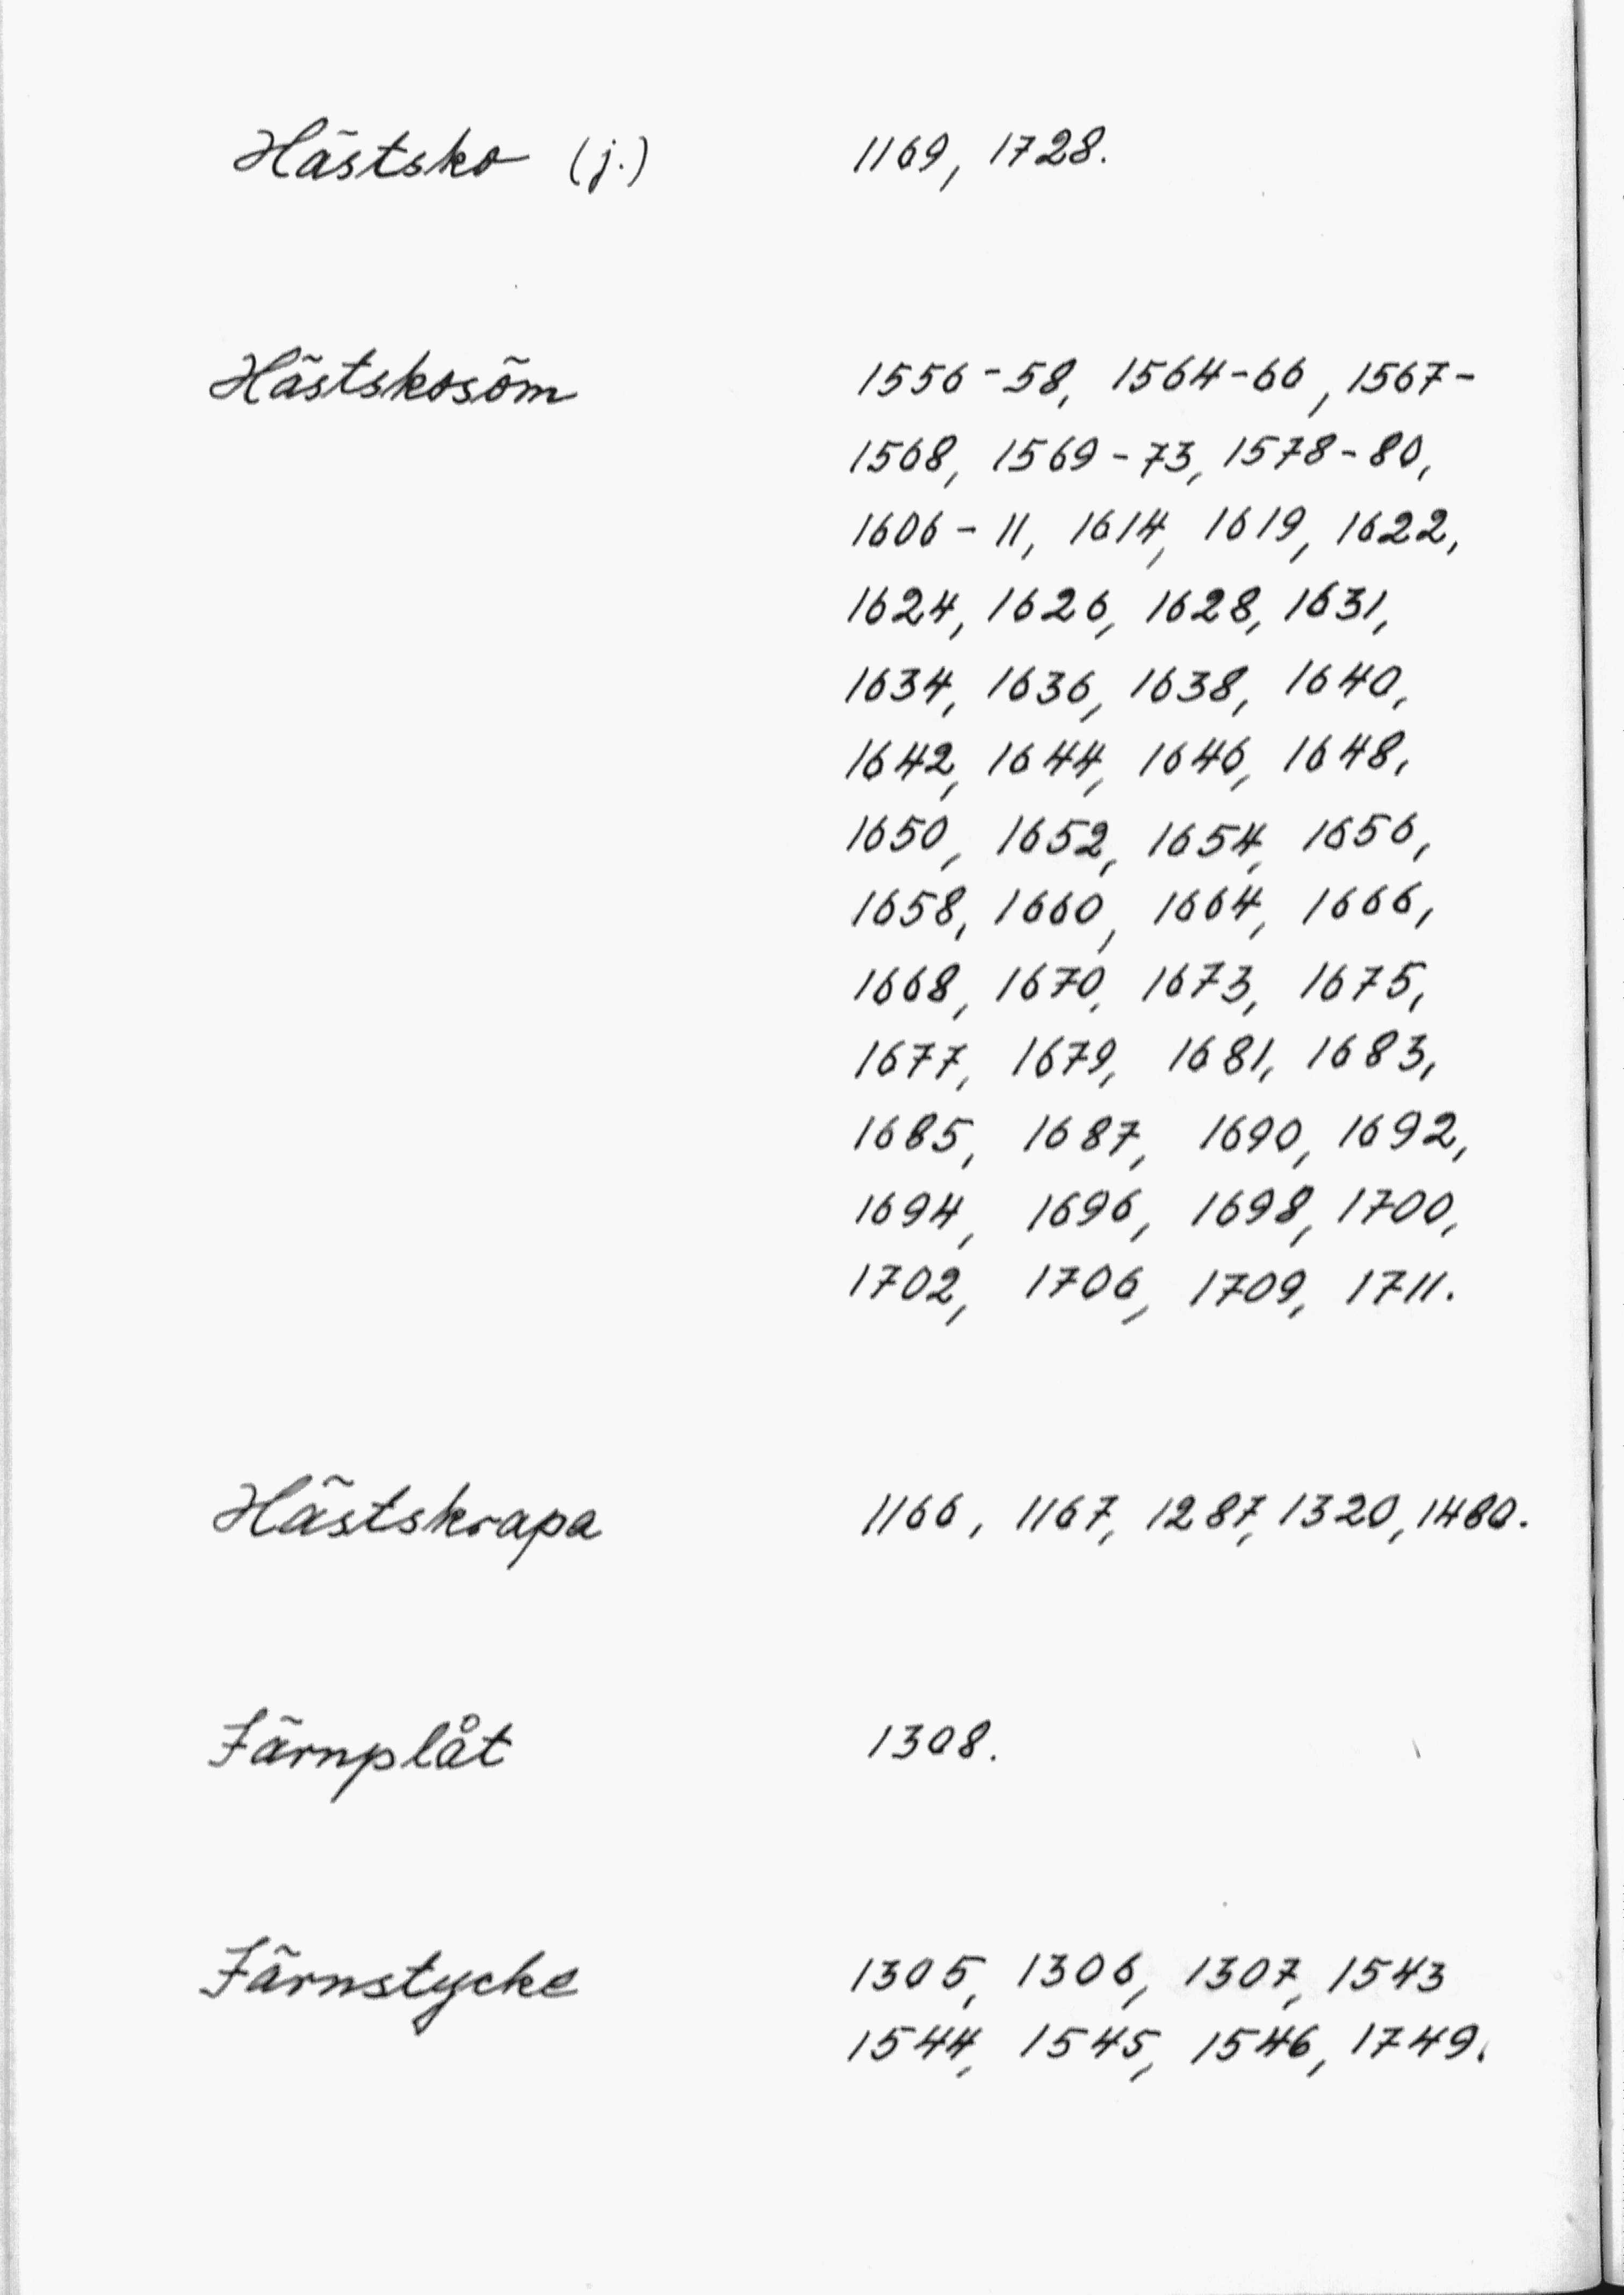 Hästsko (j.) 1169, 1728.
Hästskosöm 1556-58, 1564-66, 1567-
1568, 1569-73, 1578-80,
1606-11, 1614, 1619, 1622,
1624, 1626, 1628, 1631,
1634, 1636, 1638, 1640,
1642, 1644, 1646, 1648,
1650, 1652, 1654, 1656,
1658, 1660, 1664, 1666,
1668, 1670, 1673, 1675,
1677, 1679, 1681, 1683,
1685, 1687, 1690, 1692,
1694, 1696, 1698, 1700,
1702, 1706, 1709, 1711.
Hästskrapa 1166, 1167, 1287, 1320, 1480.
Järnplåt 1308.
Järnstycke 1305, 1306, 1307, 1543
1544, 1545, 1546, 1749.